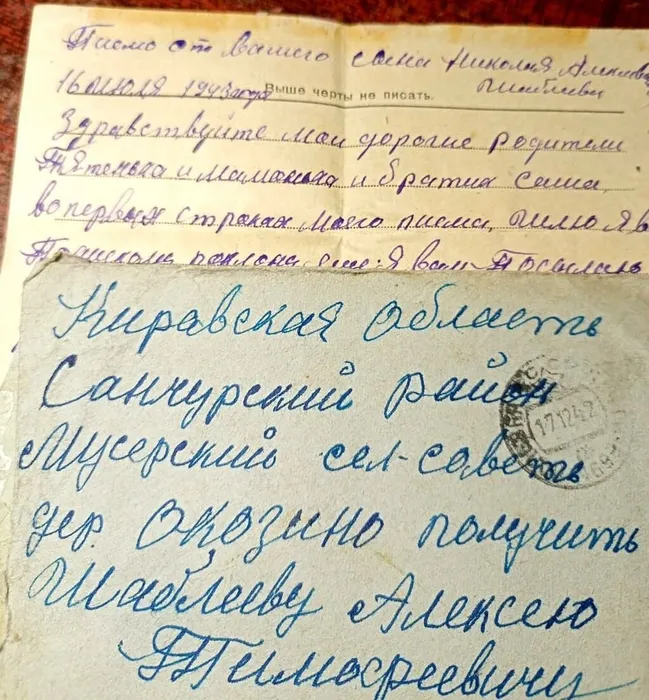 Писмо от вашего сына Николая Алексеев
Шаблеева
16 июля 1943 года
Выше черты не писать.
Здравствуйте маи дорогие родители
Тятенька и маманька и братик Саша
во первых строках моего писма, шлю я в
поклона еще я вам Посылаю
Киравская область
Санчурский район
Мусерский сел-советь
дер. Окозино получить
Шаблееву Алексею
Тимофеевичу
17 12 42